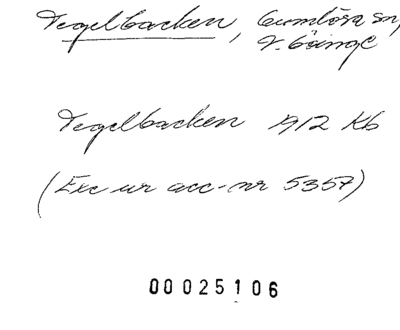 Tegelbacken, Gumlösa sn,
V. Göinge
Tegelbacken 1912 Kb
(Exc ur acc-nr 5357)
00025106